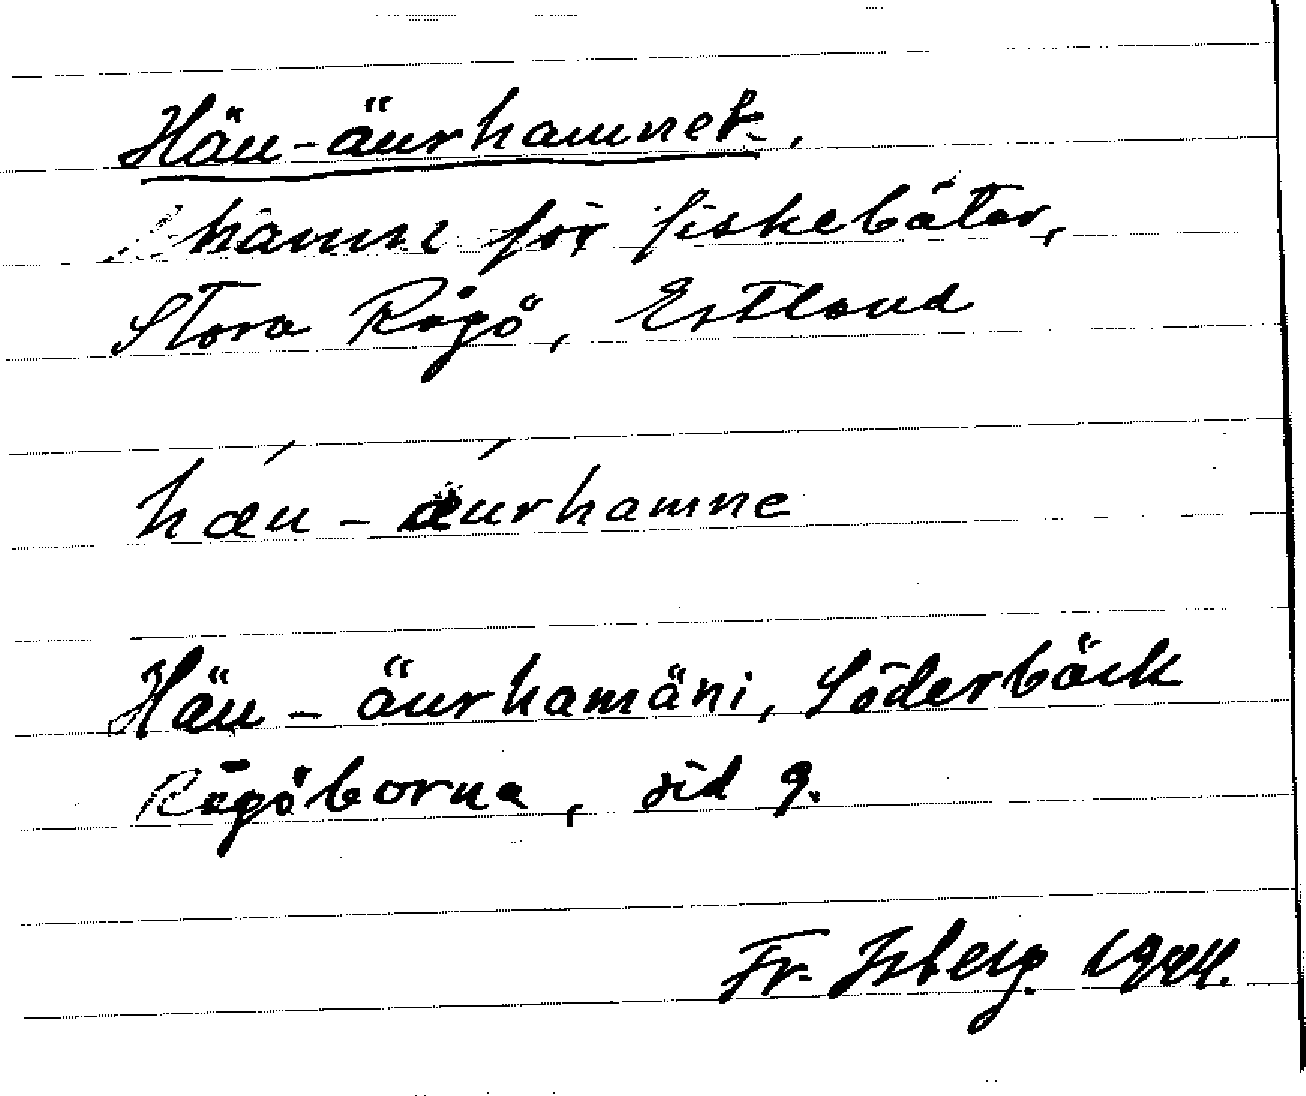 Häu-äurhamnet.,
hamne för fiskebåtar,
Stora Rågö, Estland
hæu - æurhamne
Häu - äurhamäni, Söderbäck
Rågöborna, sid 9.
Fr. Isberg. 1924.